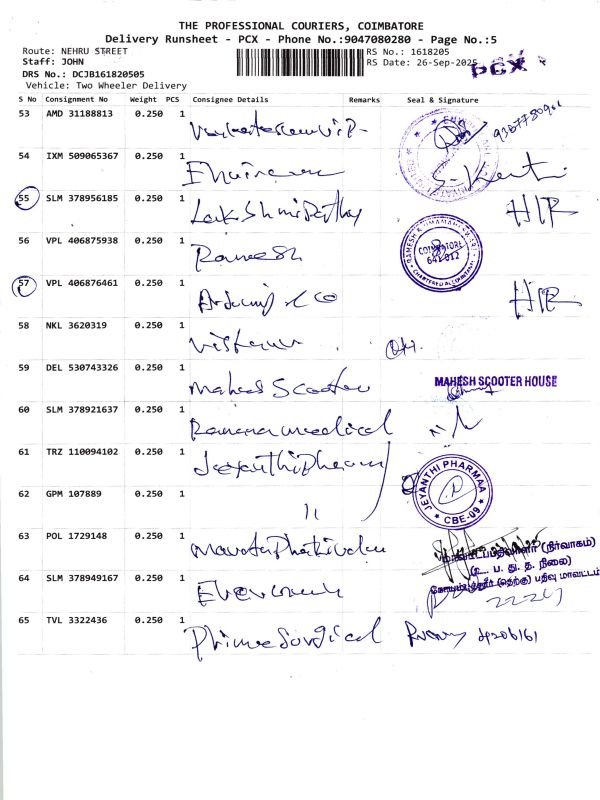 THE PROFESSIONAL COURIERS, COIMBATORE
Delivery Runsheet - PCX - Phone No.:9047080280 - Page No.:5
Route: NEHRU STREET RS No.: 1618205
Staff: JOHN RS Date: 26-Sep-2025
PCX
DRS No.: DCJB161820505
Vehicle: Two Wheeler Delivery
S No Consignment No Weight PCS Consignee Details Remarks Seal & Signature
53 AMD 31188813 0.250 1
54 IXM 509065367 0.250 1
55 SLM 378956185 0.250 1 Lakshmi Pathy
56 VPL 406875938 0.250 1 Ramesh
COIMBATORE
641 012
CHARTERED ACCOUNTANT
57 VPL 406876461 0.250 1
58 NKL 3620319 0.250 1
59 DEL 530743326 0.250 1 Mahes Scooter MAHESH SCOOTER HOUSE
60 SLM 378921637 0.250 1 Ramana medical
61 TRZ 110094102 0.250 1 Jeyanthi Pharm
JEYANTHI PHARMAA
CBE-09
62 GPM 107889 0.250 1 11
63 POL 1729148 0.250 1
(நிர்வாகம்)
(உ. ப. து. த. நிலை)
64 SLM 378949167 0.250 1
(தெற்கு) பதிவு மாவட்டம்
65 TVL 3322436 0.250 1 Prime Surgical